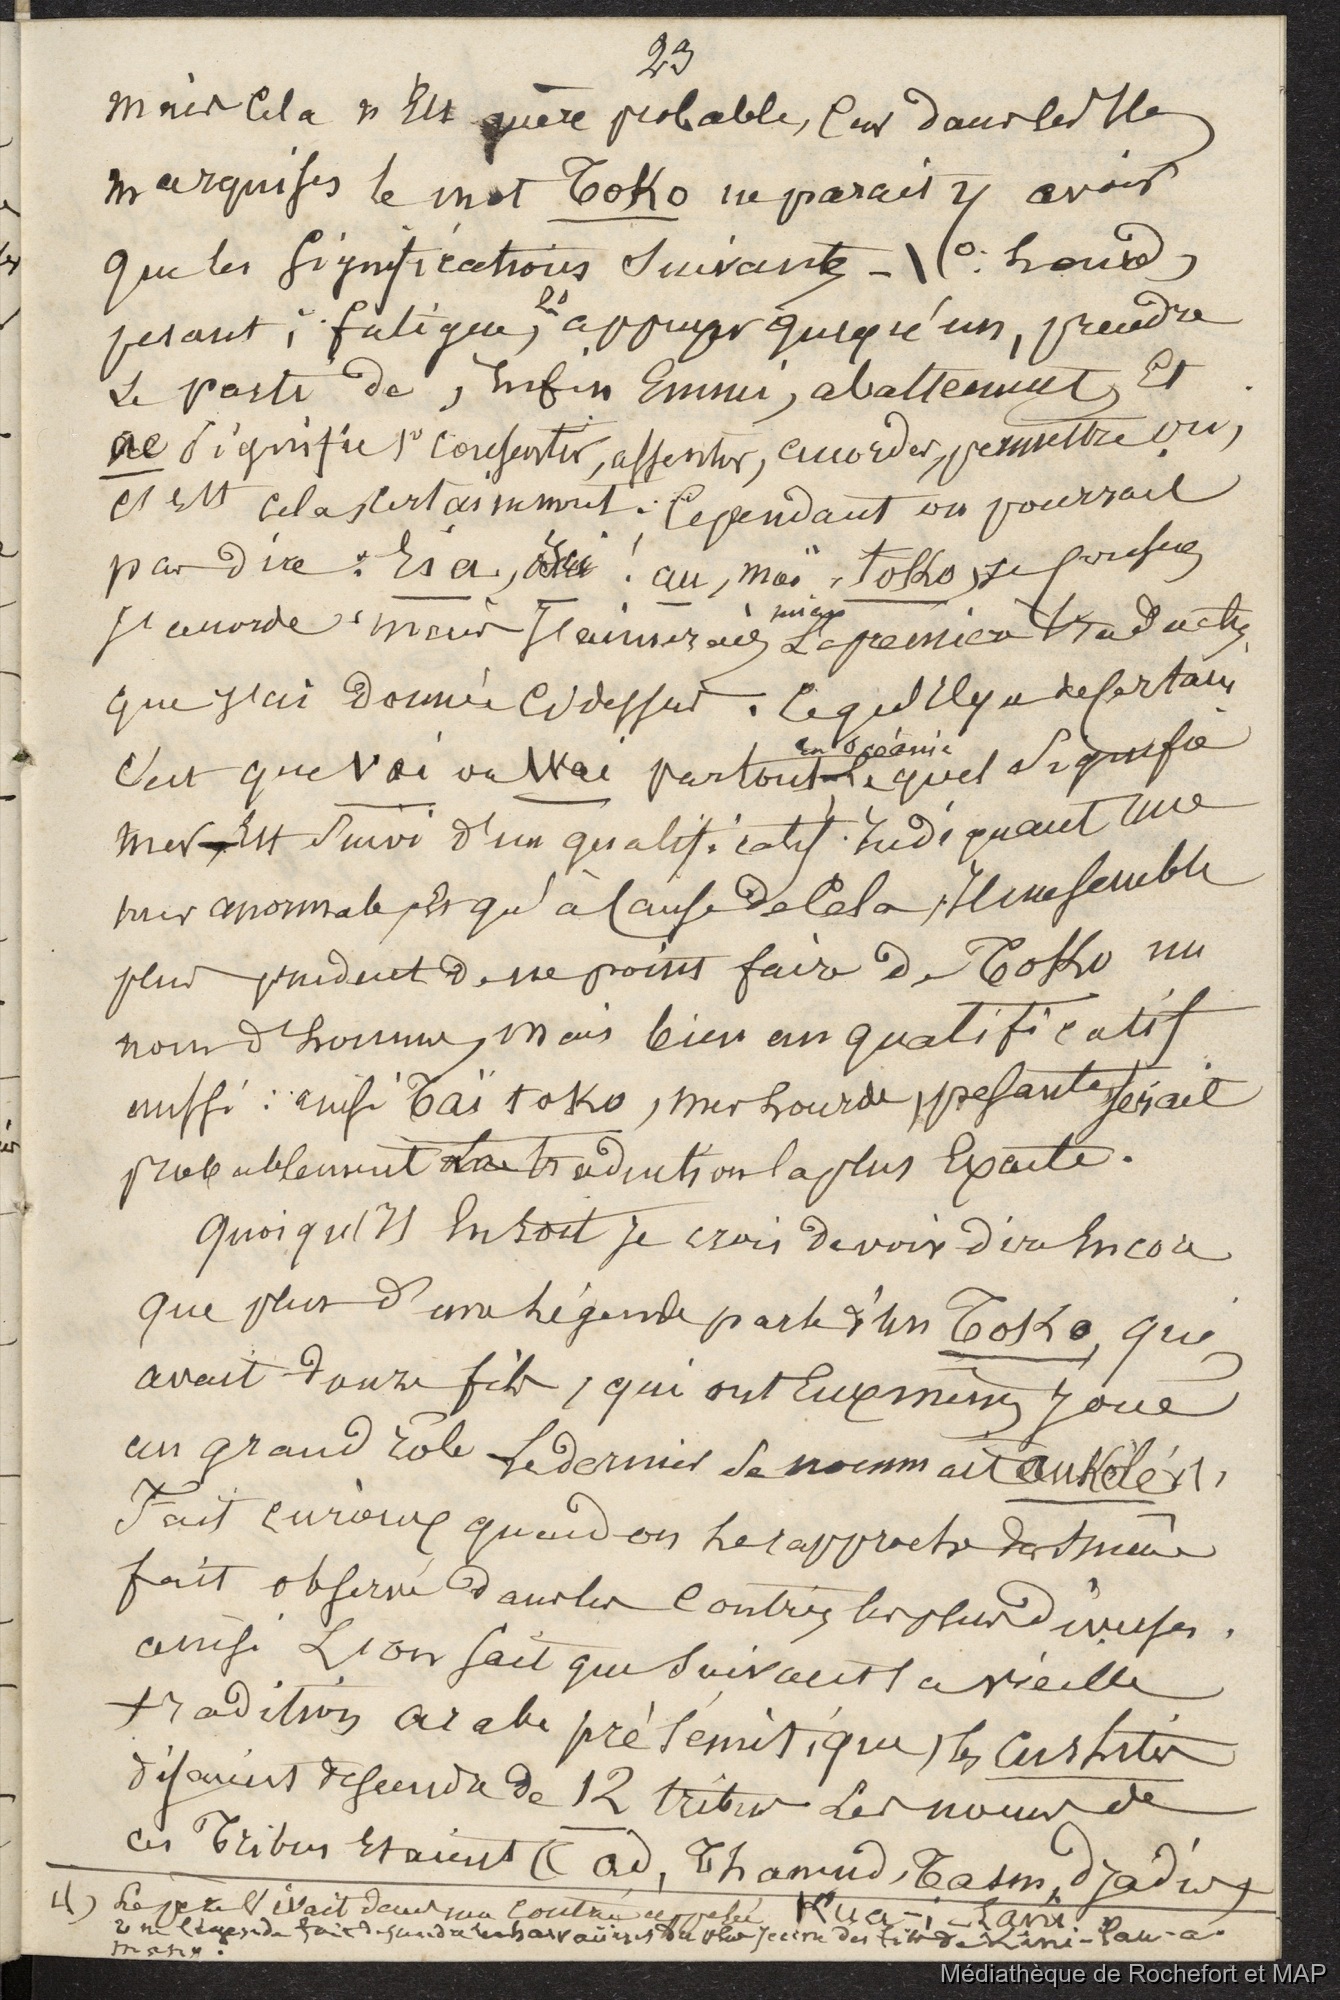 23
mais cela n'est guère probable, car dans les Iles
marquises le mot Toko ne parait y avoir
que les significations suivantes - 1o: lourd,
pesant; fatigue, appuyer quelqu'un, prendre
le parti de, enfin Ennui, abattement, Et
ae signifie consentir, assentir, accorder, permettre oui,
c'est cela certainement. Cependant on pourrait
par dire: Eia, ! au, moi, toko, je consens,
j'accorde; mais j'aimerais mieux la première traduction
que j'ai donnée ci dessus. Ce qu'il y a de certain
c'est que Vai ou Wai partout en océanie lequel signifie
mer, Est suivi d'un qualificatif indiquant une
mer anormale, Et qu'à cause de Cela, il me semble
plus prudent de ne point faire de Toko un
nom d'homme, mais bien un qualificatif
aussi: ainsi Taï toko, mer lourde, pesante serait
probablement la traduction la plus Exacte.
Quoiqu'il En soit je crois devoir dire Encore
que plus d'une légende parle d'un Toko, qui
avait douze fils, qui ont Eux mêmes joué
un grand rôle Le dernier se nommait
Fait curieux quand on le rapproche du même
fait observé dans les contrées les plus diverses.
ainsi L'on sait que suivant la vieille
tradition arabe présémitique, les Cushites
disaient descendre de 12 tribus Les noms de
ces Tribus Etaient (Ad, Thamud, Tasm, Djadis,
(1) Le père vivait dans une contrée appelée Kua-i-
une légende fait descendre les havaiiens du plus jeune des fils de Kini-lau-a-
mano.
Médiathèque de Rochefort et MAP